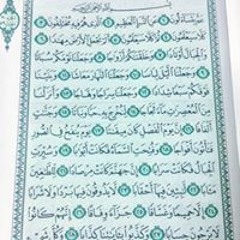 بِسْمِ اللَّهِ الرَّحْمَٰنِ الرَّحِيمِ
عَمَّ يَتَسَاءَلُونَ ١ عَنِ النَّبَإِ الْعَظِيمِ ٢ الَّذِي هُمْ فِيهِ مُخْتَلِفُونَ ٣
كَلَّا سَيَعْلَمُونَ ٤ ثُمَّ كَلَّا سَيَعْلَمُونَ ٥ أَلَمْ نَجْعَلِ الْأَرْضَ مِهَادًا ٦
وَالْجِبَالَ أَوْتَادًا ٧ وَخَلَقْنَاكُمْ أَزْوَاجًا ٨ وَجَعَلْنَا نَوْمَكُمْ سُبَاتًا ٩
وَجَعَلْنَا اللَّيْلَ لِبَاسًا ١٠ وَجَعَلْنَا النَّهَارَ مَعَاشًا ١١ وَبَنَيْنَا
فَوْقَكُمْ سَبْعًا شِدَادًا ١٢ وَجَعَلْنَا سِرَاجًا وَهَّاجًا ١٣ وَأَنزَلْنَا
مِنَ الْمُعْصِرَاتِ مَاءً ثَجَّاجًا ١٤ لِّنُخْرِجَ بِهِ حَبًّا وَنَبَاتًا ١٥ وَجَنَّاتٍ
أَلْفَافًا ١٦ إِنَّ يَوْمَ الْفَصْلِ كَانَ مِيقَاتًا ١٧ يَوْمَ يُنفَخُ فِي الصُّورِ
فَتَأْتُونَ أَفْوَاجًا ١٨ وَفُتِحَتِ السَّمَاءُ فَكَانَتْ أَبْوَابًا ١٩ وَسُيِّرَتِ
الْجِبَالُ فَكَانَتْ سَرَابًا ٢٠ إِنَّ جَهَنَّمَ كَانَتْ مِرْصَادًا ٢١ لِّلطَّاغِينَ
مَآبًا ٢٢ لَّابِثِينَ فِيهَا أَحْقَابًا ٢٣ لَّا يَذُوقُونَ فِيهَا بَرْدًا وَلَا شَرَابًا ٢٤
إِلَّا حَمِيمًا وَغَسَّاقًا ٢٥ جَزَاءً وِفَاقًا ٢٦ إِنَّهُمْ كَانُوا
لَا يَرْجُونَ حِسَابًا ٢٧ وَكَذَّبُوا بِآيَاتِنَا كِذَّابًا ٢٨ وَكُلَّ شَيْءٍ